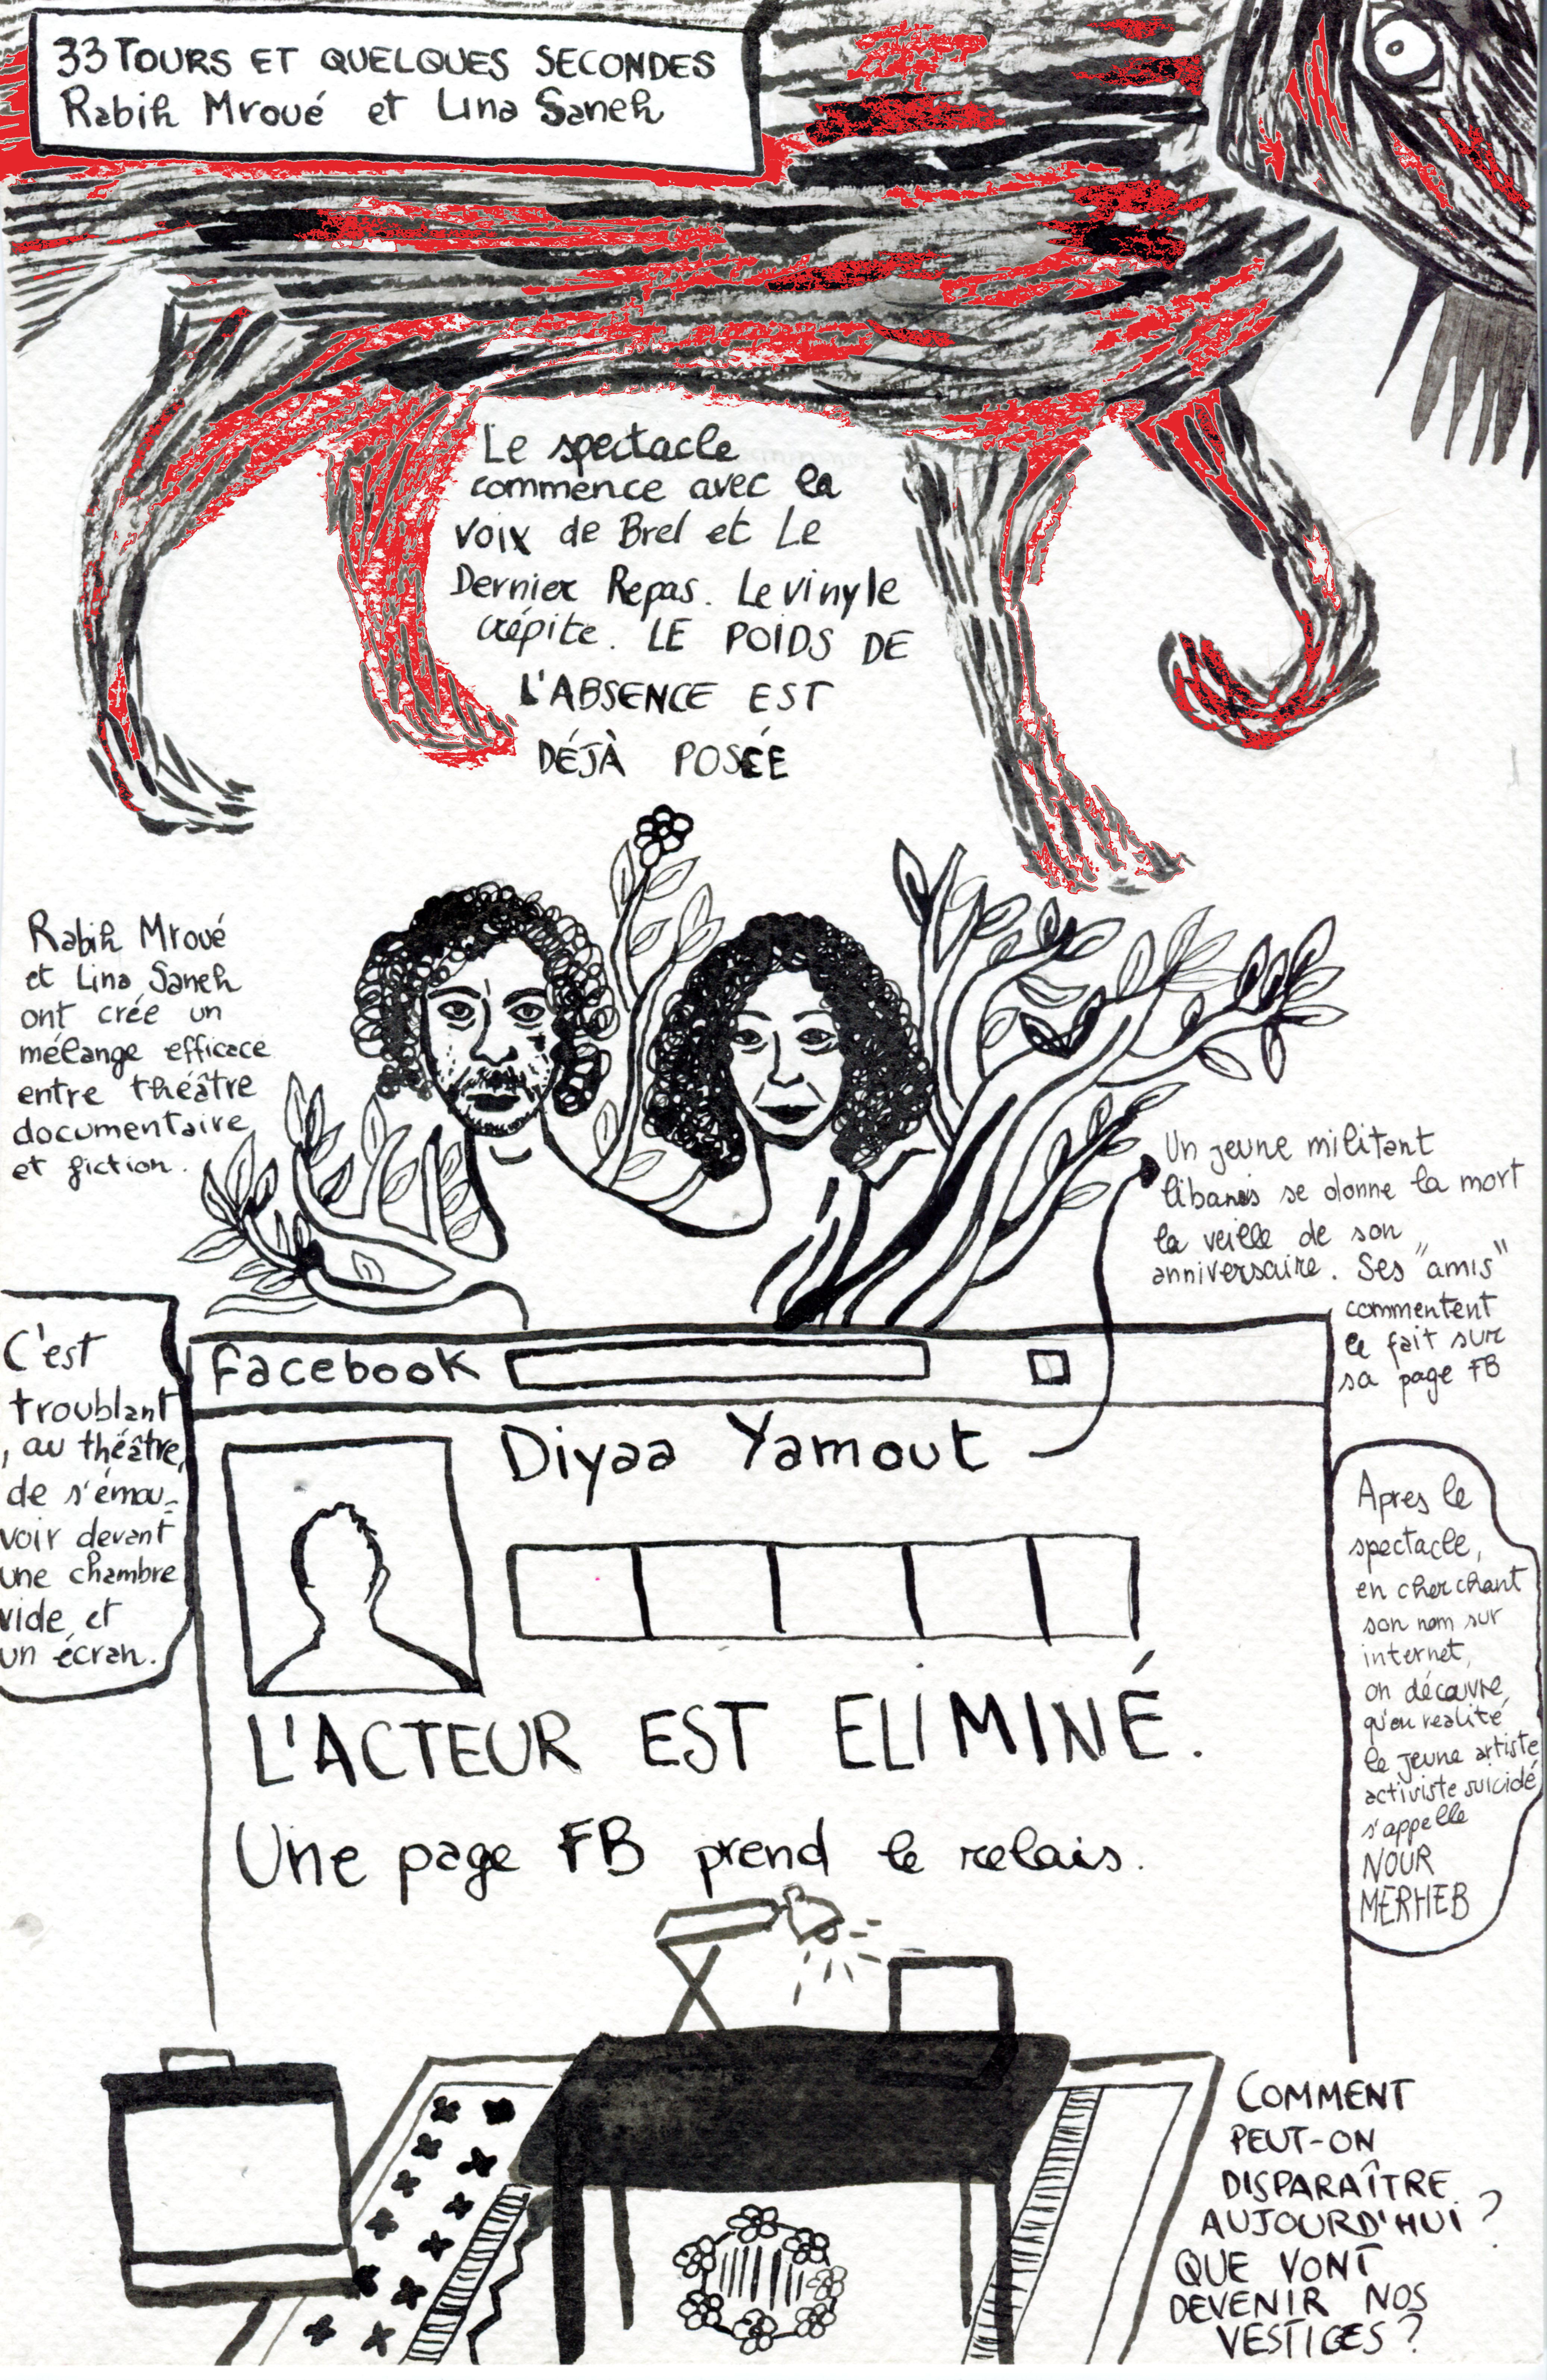 33 TOURS ET QUELQUES SECONDES
Rabih Mroué et Lina Saneh
Le spectacle
commence avec la
voix de Brel et Le
Dernier Repas. Le vinyle
crépite. LE POIDS DE
L'ABSENCE EST
DÉJÀ POSÉE
Rabih Mroué
et Lina Saneh
ont crée un
mélange efficace
entre théâtre
documentaire
et fiction.
Un jeune militant
libanais se donne la mort
la veille de son
anniversaire. Ses "amis"
commentent
le fait sur
sa page FB
C'est
troublant
, au théâtre,
de s'émou-
voir devant
une chambre
vide, et
un écran.
Facebook
Diyaa Yamout
L'ACTEUR EST ELIMINÉ.
Une page FB prend le relais.
Apres le
spectacle,
en cherchant
son nom sur
internet,
on découvre
qu'en realité
le jeune artiste
activiste suicidé
s'appelle
NOUR
MERHEB
COMMENT
PEUT-ON
DISPARAÎTRE
AUJOURD'HUI ?
QUE VONT
DEVENIR NOS
VESTIGES ?